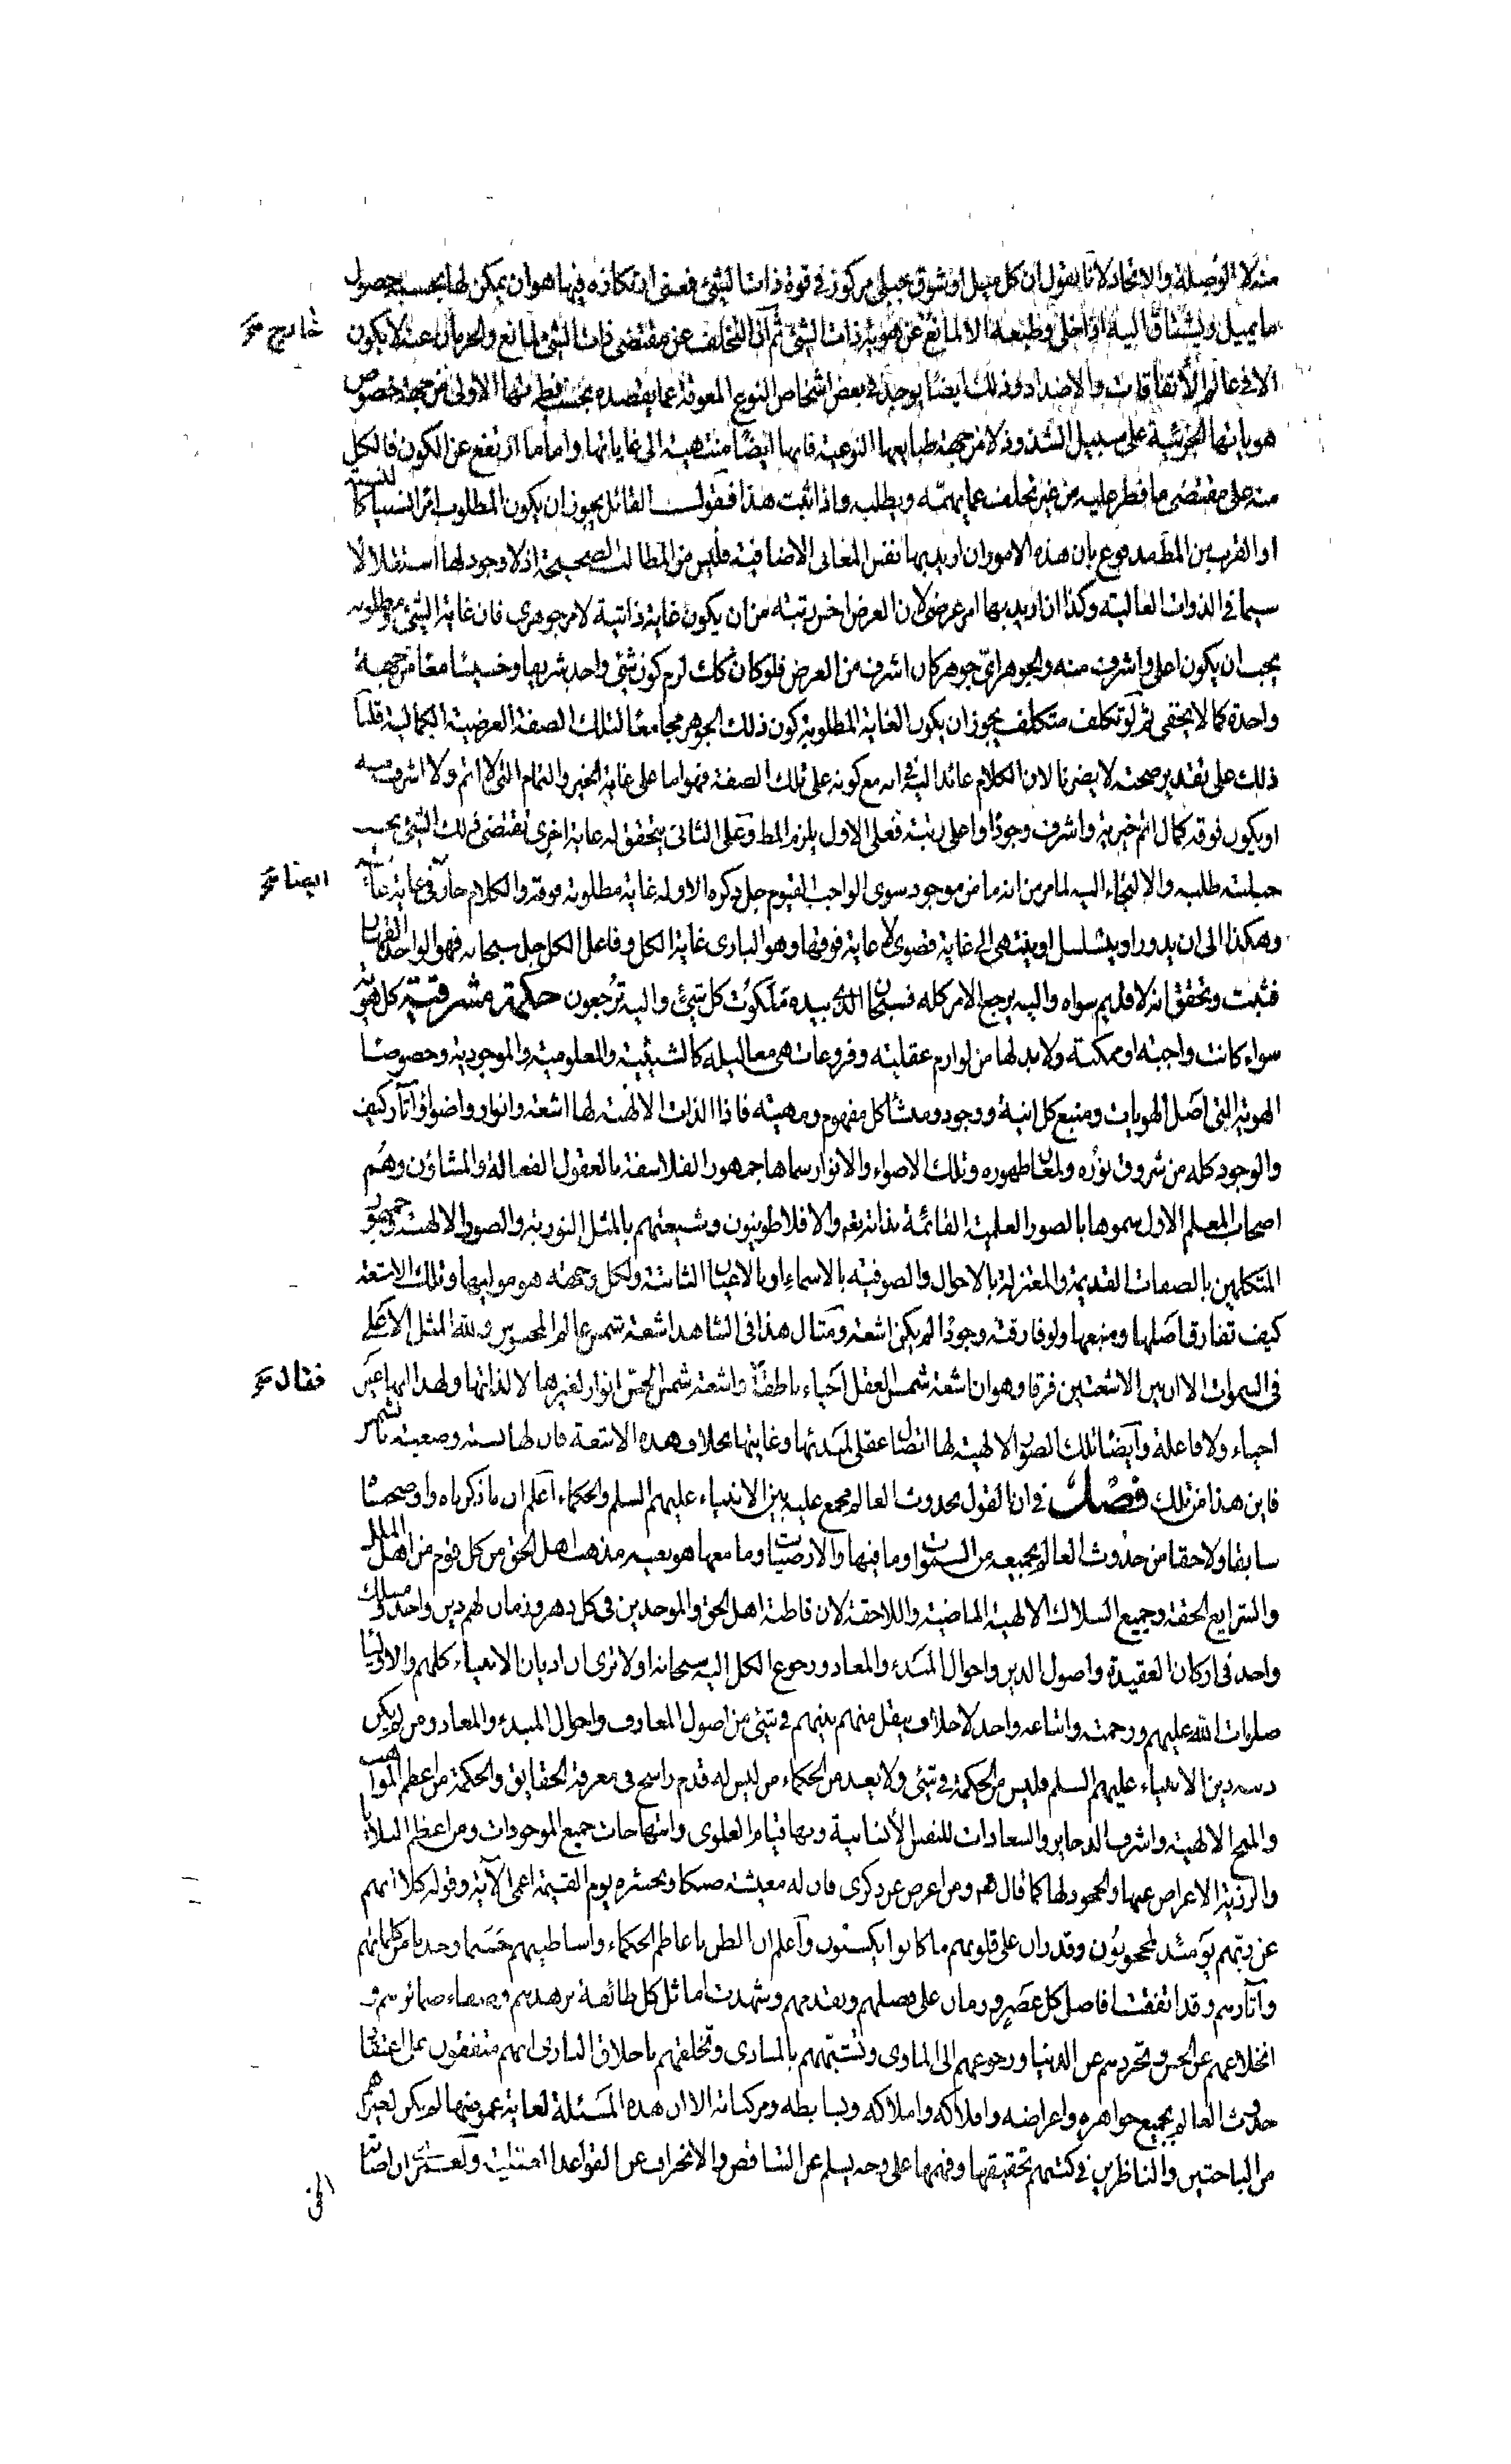 منه لا الوصلة والاتحاد لانا نقول ان كل ميل او شوق جبلى مركوز فى قوة ذات الشئ فمعنى ارتكازه فيها هو ان يمكن لها بحسبه حصول
ما يميل ويشتاق اليه اذا خلى وطبعه الا لمانع عن هوية ذات الشئ ثم ان التخلف عن مقتضى ذات الشئ لمانع والحرمان عنه لا يكون
خارج
الا فى عالم الاتفاقات والاضداد وذلك ايضا يوجد فى بعض اشخاص النوع المعوقة عما يقصده بحسب فطرتها الاولى من جهة خصوص
هوياتها الجزئية على سبيل الشذوذ لا من جهة طبايعها النوعية فانها ايضا منتهية الى غاياتها واما ما ارتفع عن الكون فالكل
منه على مقتضى ما فطر عليه من غير تخلف عما يهمه ويطلبه واذا ثبت هذا فقول القائل يجوز ان يكون المطلوب امرا نسبيا كالنسبة
او القرب من المط مدفوع بان هذه الامور ان اريد بها نفس المعانى الاضافية فليس من المطالب الصحيحة اذ لا وجود لها استقلالا
سيما فى الذوات العالية وكذا ان اريد بها امر عرضى لان العرض اخس رتبة من ان يكون غاية ذاتية لامر جوهرى فان غاية الشئ ومطلوبه
يجب ان يكون اعلى واشرف منه والجوهر اى جوهر كان اشرف من العرض فلو كان كك لزم كون شئ واحد شريفا وخسيسا معا من جهة
واحدة كما لا يخفى ثم لو تكلف متكلف يجوز ان يكون الغاية المطلوبة كون ذلك الجوهر مجامعا لتلك الصفة العرضية الكمالية قلنا
ذلك على تقدير صحته لا يضرنا لان الكلام عائد اليه فى انه مع كونه على تلك الصفة فهو اما على غاية الخير والتمام التى لا اتم ولا اشرف منه
او يكون فوقه كمال اتم خيرية واشرف وجودا واعلى رتبة فعلى الاول يلزم المط وعلى الثانى يتحقق له غاية اخرى تقتضى ذلك الشئ بحسب
جبلته طلبه والالتجاء اليه لما مر من انه ما من موجود سوى الواجب القيوم جل ذكره الا وله غاية مطلوبة فوقه والكلام جار فى غاية غايته
ايضا
وهكذا الى ان يدور او يتسلسل او ينتهى الى غاية قصوى لا غاية فوقها وهو البارى غاية الكل وفاعل الكل جل سبحانه فهو الواحد القهار
فثبت وتحقق انه لا قديم سواه واليه يرجع الامر كله فسبحان الذى بيده ملكوت كل شئ واليه ترجعون حكمة مشرقية كل هوية
سواء كانت واجبة او ممكنة ولا بد لها من لوازم عقلية وفروعات هى معاليله كالشيئية والمعلومية والموجودية وخصوصا
الهوية التى اصل الهويات ومنبع كل انية ووجود ومنشأ كل مفهوم ومهية فاذا الذات الالهية لها اشعة وانوار واضواء وآثار كيف
والوجود كله من شروق نوره ولمعان ظهوره وتلك الاضواء والانوار سماها جمهور الفلاسفة بالعقول الفعالة والمشاؤن وهم
اصحاب المعلم الاول سموها بالصور العلمية القائمة بذاته تع والافلاطونيون وشيعتهم بالمثل النورية والصور الالهية وجمهور
المتكلمين بالصفات القديمة والمعتزلة بالاحوال والصوفية بالاسماء او بالاعيان الثابتة ولكل وجهة هو موليها وتلك الاشعة
كيف تفارق اصلها ومنبعها ولو فارقته وجودا لم يكن اشعة ومثال هذا فى الشاهد اشعة شمس عالم المحسوس ولله المثل الاعلى
فى السموات الا ان بين الاشعتين فرقا وهو ان اشعة شمس العقل احياء ناطقة واشعة شمس الحس انوار لغيرها لا لذاتها ولهذا انها غير
فعالة
احياء ولا فاعلة وايضا تلك الصور الالهية لها اتصال عقلى لمبدئها وغايتها بخلاف هذه الاشعة فان لها نسبة وضعية بالشمس
فاين هذا من تلك فصل فى ان القول بحدوث العالم مجمع عليه بين الانبياء عليهم السلم والحكماء اعلم ان ما ذكرناه واوضحنا
سابقا ولاحقا من حدوث العالم بجميعه من السموات وما فيها والارضيات وما معها هو بعينه مذهب اهل الحق من كل قوم من اهل الملل
والشرايع الحقة وجميع السلاك الالهية الماضية واللاحقة لان قاطبة اهل الحق والموحدين فى كل دهر وزمان لهم دين واحد ومسلك
واحد فى اركان العقيدة واصول الدين واحوال المبدء والمعاد ورجوع الكل اليه سبحانه اولا ترى ان اديان الانبياء كلهم والاولياء
صلوات الله عليهم ورحمته واتباعه واحد لا خلاف ينقل منهم بينهم فى شئ من اصول المعارف واحوال المبدء والمعاد ومن لم يكن
دينه دين الانبياء عليهم السلم فليس من الحكمة فى شئ ولا يعد من الحكماء من ليس له قدم راسخ فى معرفة الحقايق والحكمة من اعظم المواهب
والمنح الالهية واشرف الذخاير والسعادات للنفس الانسانية وبها قيام العلوى وابتهاجات جميع الموجودات ومن اعظم البلايا
والرزية الاعراض عنها والجحود لها كما قال هم ومن اعرض عن ذكرى فان له معيشة ضنكا ونحشره يوم القيمة اعمى الآية وقوله كلا انهم
عن ربهم يومئذ لمحجوبون وقد ران على قلوبهم ما كانوا يكسبون واعلم ان الظن باعاظم الحكماء واساطينهم حسبما وجدنا من كلماتهم
وآثارهم وقد اتفقت افاضل كل عصر وزمان على فضلهم وتقدمهم وشهدت اماثل كل طائفة بزهدهم وصفاء ضمائرهم و
انخلاعهم عن الحس وتجردهم عن الدنيا ورجوعهم الى الماوى وتشبههم بالمبادى وتخلقهم باخلاق البارى انهم متفقون على اعتقاد
حدوث العالم بجميع جواهره واعراضه وافلاكه واملاكه وبسايطه ومركباته الا ان هذه المسئلة لغاية غموضها لم يكن لغيرهم
من الباحثين والناظرين فى كتبهم تحقيقها وفهمها على وجه يسلم عن التناقض والانحراف عن القواعد العقلية ولعمرى ان اصابة
الحق